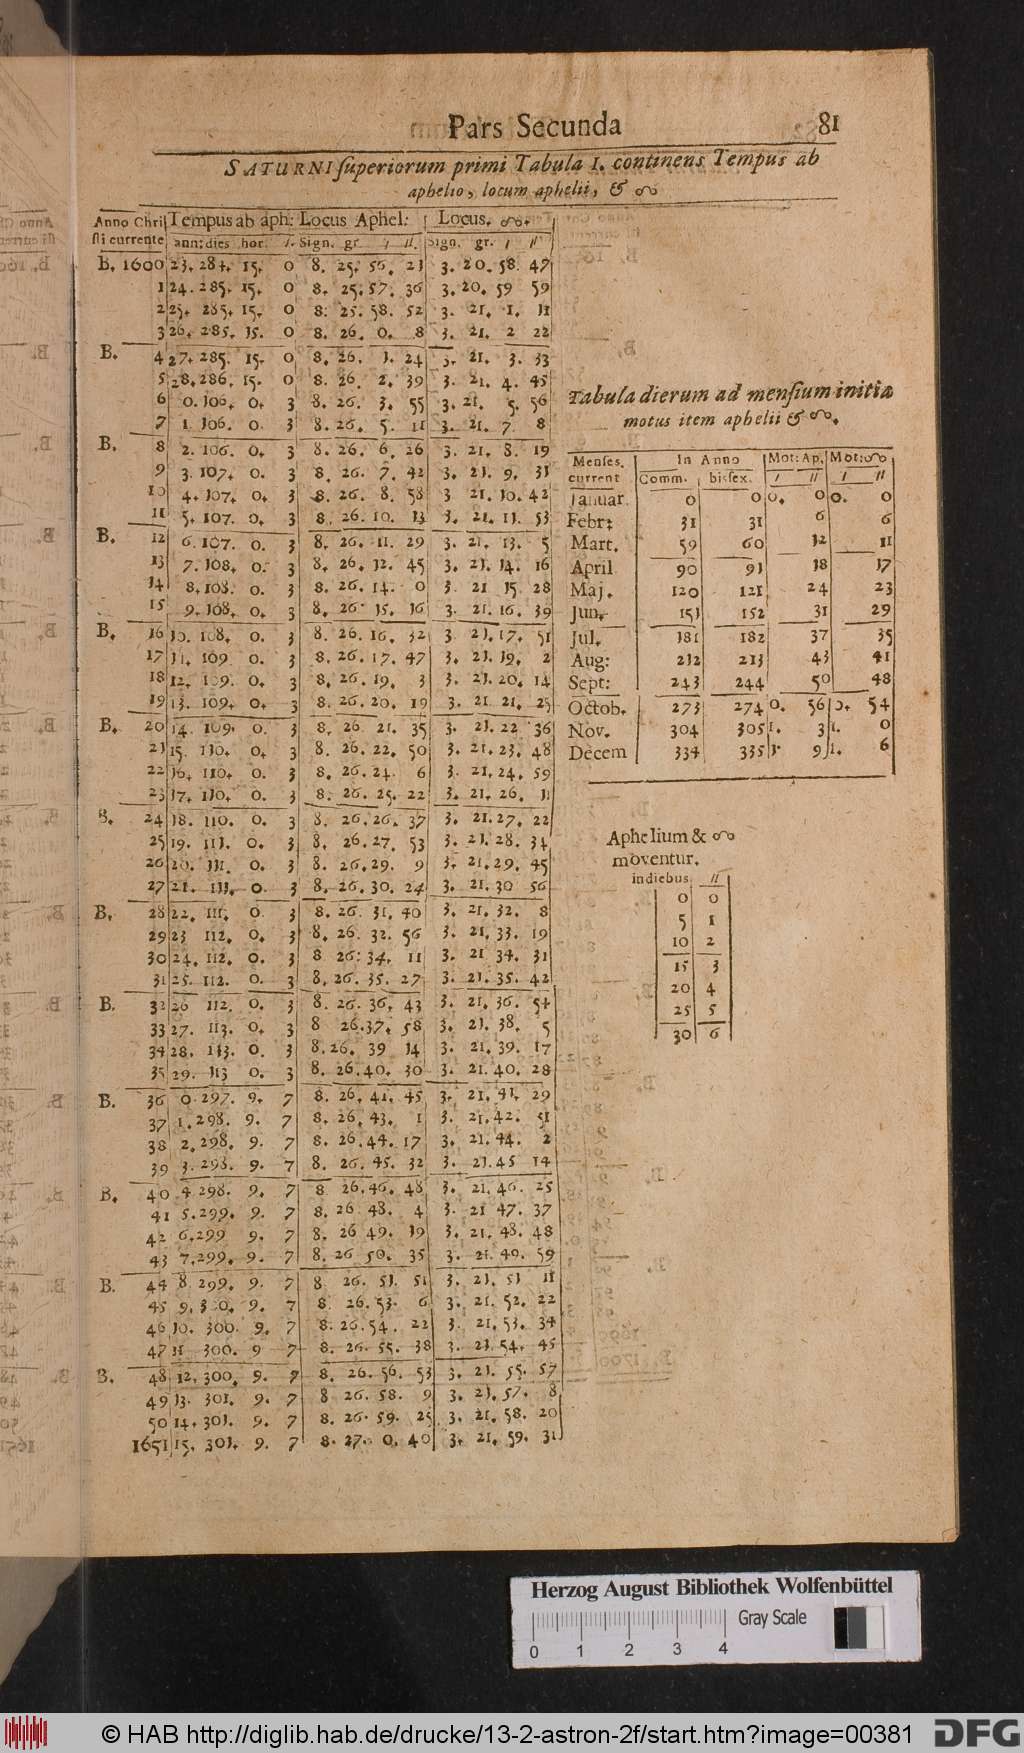 Pars Secunda 81
SATURNI superiorum primi Tabula I. continens Tempus ab
aphelio, locum aphelii, & ☊
Anno Chri Tempus ab aph: Locus Aphel: Locus. ☊.
sti currente ann: dies hor. ı. Sign. gr. ı ıı. Sign. gr. ı ıı
B. 1600 23. 284. 15. 0 8. 25. 56. 21 3. 20. 58. 47
1 24. 285. 15. 0 8. 25. 57. 36 3. 20. 59 59
2 25. 285. 15. 0 8: 25. 58. 52 3. 21. 1. 11
3 26. 285. 15. 0 8. 26. 0. 8 3. 21. 2 22
B. 4 27. 285. 15. 0 8. 26. 1. 24 3. 21. 3. 33
5 28. 286. 15. 0 8. 26. 2. 39 3. 21. 4. 45
6 0. 106. 0. 3 8. 26. 3. 55 3. 21. 5. 56
7 1. 106. 0. 3 8. 26. 5. 11 3. 21. 7. 8
B. 8 2. 106. 0. 3 8. 26. 6. 26 3. 21. 8. 19
9 3. 107. 0. 3 8. 26. 7. 42 3. 21. 9. 31
10 4. 107. 0. 3 8. 26. 8. 58 3 21. 10. 42
11 5. 107. 0. 3 8. 26. 10. 13 3. 21. 11. 53
B. 12 6. 107. 0. 3 8. 26. 11. 29 3. 21. 13. 5
13 7. 108. 0. 3 8. 26. 12. 45 3. 21. 14. 16
14 8. 108. 0. 3 8. 26. 14. 0 3. 21 15. 28
15 9. 108. 0. 3 8. 26. 15. 16 3. 21. 16. 39
B. 16 10. 108. 0. 3 8. 26. 16. 32 3. 21. 17. 51
17 11. 109 0. 3 8. 26. 17. 47 3. 21. 19. 2
18 12. 109. 0. 3 8. 26. 19. 3 3. 21. 20. 14
19 13. 109. 0. 3 8. 26. 20. 19 3. 21. 21. 25
B. 20 14. 109. 0. 3 8. 26 21. 35 3. 21. 22 36
21 15. 110. 0. 3 8. 26. 22. 50 3. 21. 23. 48
22 16. 110. 0. 3 8. 26. 24. 6 3. 21. 24. 59
23 17. 110. 0. 3 8. 26. 25. 22 3. 21. 26. 11
B. 24 18. 110. 0. 3 8. 26. 26. 37 3. 21. 27. 22
25 19. 111. 0. 3 8. 26. 27. 53 3. 21. 28. 34
26 20. 111. 0. 3 8. 26. 29. 9 3. 21. 29. 45
27 21. 111. 0. 3 8. 26. 30. 24 3. 21. 30 56
B. 28 22. 111. 0. 3 8. 26. 31. 40 3. 21. 32. 8
29 23 112. 0. 3 8. 26. 32. 56 3. 21. 33. 19
30 24. 112. 0. 3 8 26: 34. 11 3. 21 34. 31
31 25. 112. 0. 3 8. 26. 35. 27 3. 21. 35. 42
B. 32 26 112. 0. 3 8. 26. 36. 43 3. 21. 36. 54
33 27. 113. 0. 3 8 26. 37. 58 3. 21. 38. 5
34 28. 113. 0. 3 8. 26. 39 14 3. 21. 39. 17
35 29. 113 0. 3 8. 26. 40. 30 3. 21. 40. 28
B. 36 0. 297. 9. 7 8. 26. 41. 45 3. 21. 41. 29
37 1. 298. 9. 7 8. 26. 43. 1 3. 21. 42. 51
38 2. 298. 9. 7 8. 26. 44. 17 3. 21. 44. 2
39 3. 298. 9. 7 8. 26. 45. 32 3. 21. 45 14
B. 40 4 298. 9. 7 8 26. 46. 48 3. 21. 46. 25
41 5. 299. 9. 7 8. 26 48. 4 3. 21 47. 37
42 6. 299 9. 7 8. 26 49. 19 3. 21. 48. 48
43 7. 299. 9. 7 8. 26 50. 35 3. 21. 49. 59
B. 44 8 299. 9. 7 8 26. 51. 51 3. 21. 51 11
45 9. 300. 9. 7 8. 26. 53. 6 3. 21. 52. 22
46 10. 300. 9. 7 8. 26. 54. 22 3. 21. 53. 34
47 11 300. 9 7 8. 26. 55. 38 3. 21. 54. 45
B. 48 12. 300. 9. 7 8. 26. 56. 53 3. 21. 55. 57
49 13. 301. 9. 7 8 26. 58. 9 3. 21. 57. 8
50 14. 301. 9. 7 8. 26. 59. 25 3. 21. 58. 20
1651 15. 301. 9. 7 8. 27. 0. 40 3. 21. 59. 31
Tabula dierum ad mensium initia
motus item aphelii & ☊.
Menses. In Anno Mot: Ap. Mot: ☊
current Comm. bissex. ı ıı ı ıı
Januar. 0 0 0. 0 0. 0
Febr: 31 31 6 6
Mart. 59 60 12 11
April 90 91 18 17
Maj. 120 121 24 23
Jun. 151 152 31 29
Jul. 181 182 37 35
Aug: 212 213 43 41
Sept: 243 244 50 48
Octob. 273 274 0. 56 0. 54
Nov. 304 305 1. 3 1. 0
Decem 334 335 1. 9 1. 6
Aphelium & ☊
moventur.
indiebus ıı
0 0
5 1
10 2
15 3
20 4
25 5
30 6
Herzog August Bibliothek Wolfenbüttel
Gray Scale
0 1 2 3 4
© HAB http://diglib.hab.de/drucke/13-2-astron-2f/start.htm?image=00381 DFG